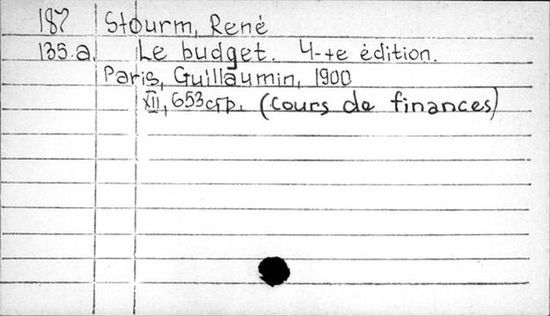 187 Stourm, René
135.a. Le budget. 4-te édition.
Paris, Guillaumin, 1900
XII, 653 стр. (Cours de finances)